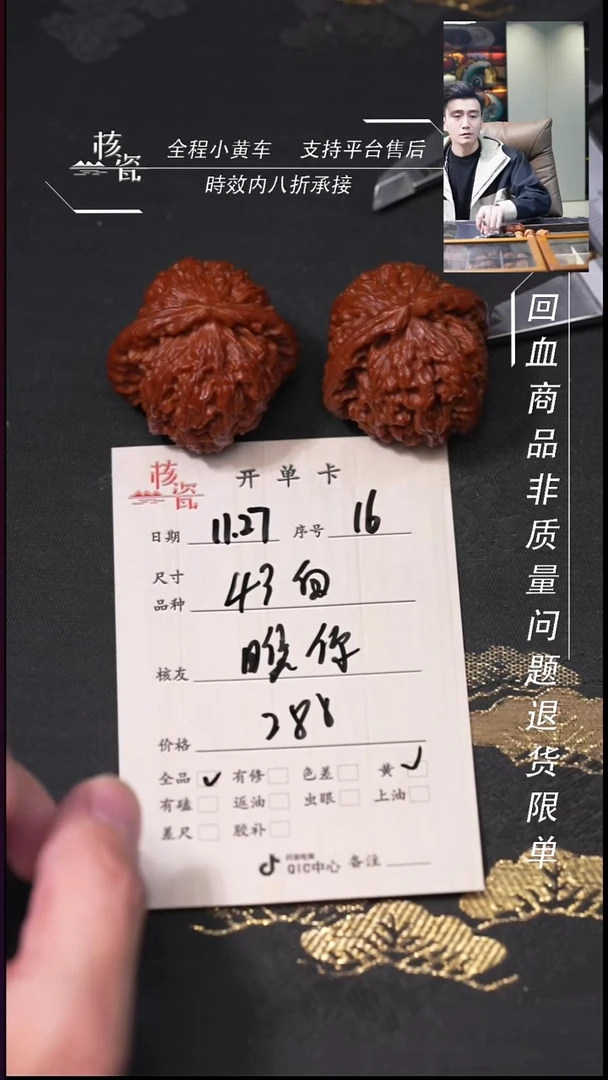 核瓷
全程小黄车 支持平台售后
時效内八折承接
回血商品非质量问题退货限单
核瓷 开单卡
日期 11.27 序号 16
尺寸
品种 43 白
核友
价格 288
全品 有修 色差 黄
有磕 返油 虫眼 上油
差尺 胶补
QIC中心 备注